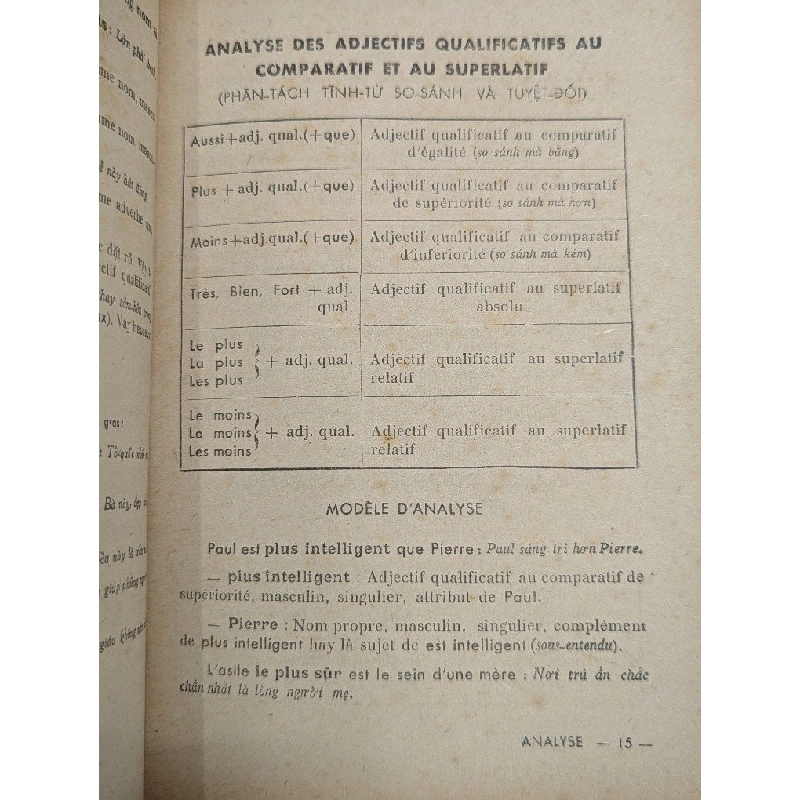 ANALYSE DES ADJECTIFS QUALIFICATIFS AU
COMPARATIF ET AU SUPERLATIF
(PHÂN-TÁCH TĨNH-TỪ SO-SÁNH VÀ TUYỆT-ĐỐI)
Aussi+adj. qual.(+que) Adjectif qualificatif au comparatif
d'égalité (so sánh mà bằng)
Plus + adj. qual.(+que) Adjectif qualificatif au comparatif
de supériorité (so sánh mà hơn)
Moins+adj.qual.(+que) Adjectif qualificatif au comparatif
d'inferiorité (so sánh mà kém)
Très, Bien, Fort + adj. Adjectif qualificatif au superlatif
qual. absolu
Le plus
La plus } + adj. qual. Adjectif qualificatif au superlatif
Les plus relatif
Le moins
La moins } + adj. qual. Adjectif qualificatif au superlatif
Les moins relatif
MODÈLE D'ANALYSE
Paul est plus intelligent que Pierre : Paul sáng trí hơn Pierre.
— plus intelligent : Adjectif qualificatif au comparatif de
supériorité, masculin, singulier, attribut de Paul.
— Pierre : Nom propre, masculin, singulier, complément
de plus intelligent hay là sujet de est intelligent (sous-entendu).
L'asile le plus sûr est le sein d'une mère : Nơi trú ẩn chắc
chắn nhất là lòng người mẹ.
ANALYSE — 15 —